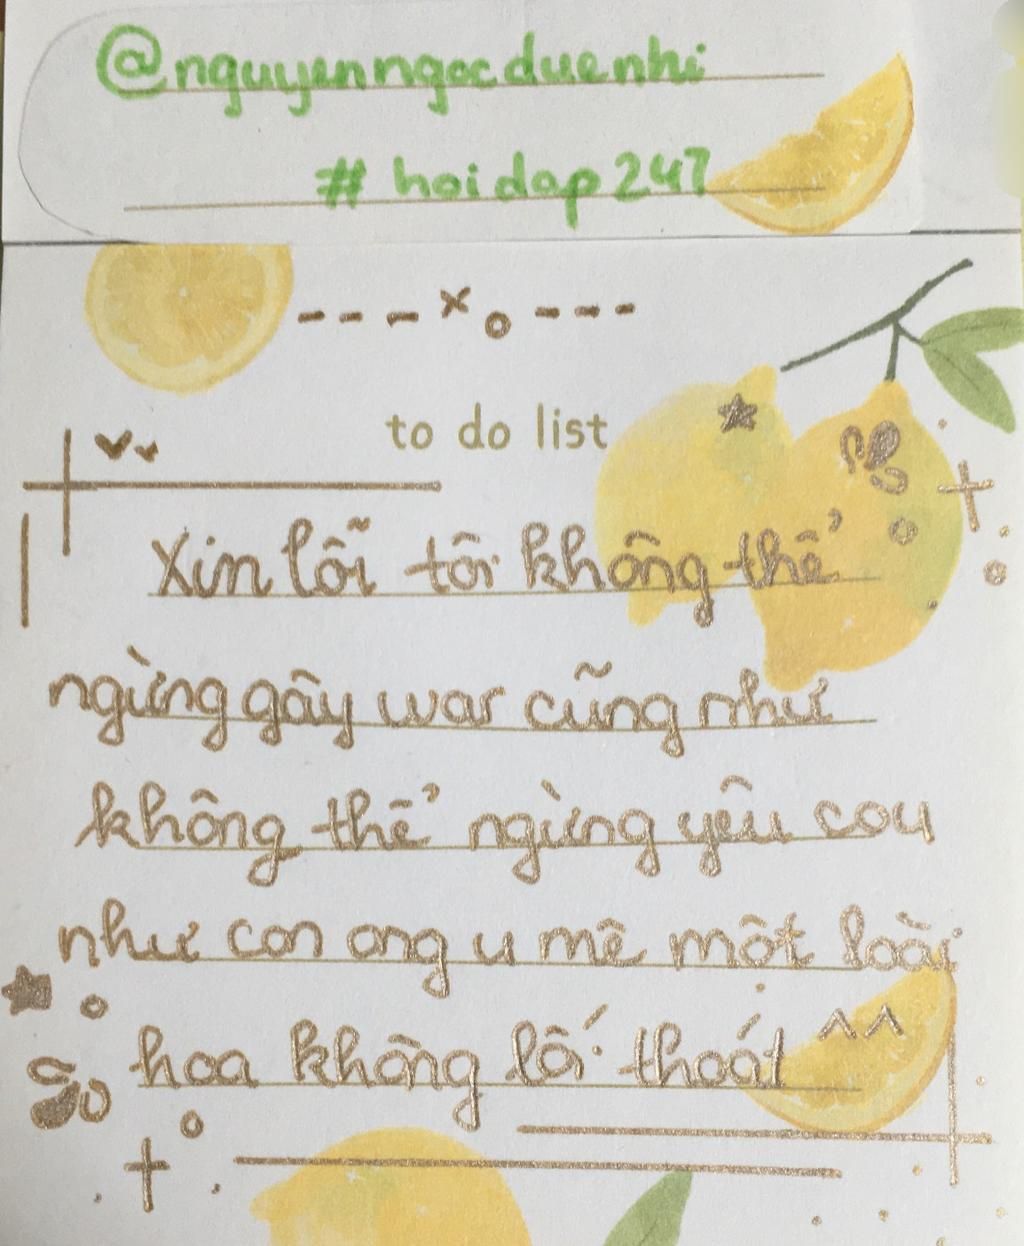 @nguyenngocduenhi
# hoidap247
to do list
Xin lỗi tôi không thể
ngừng gây war cũng như
không thể ngừng yêu cou
như con ong u mê một loài
hoa không lối thoát ^^